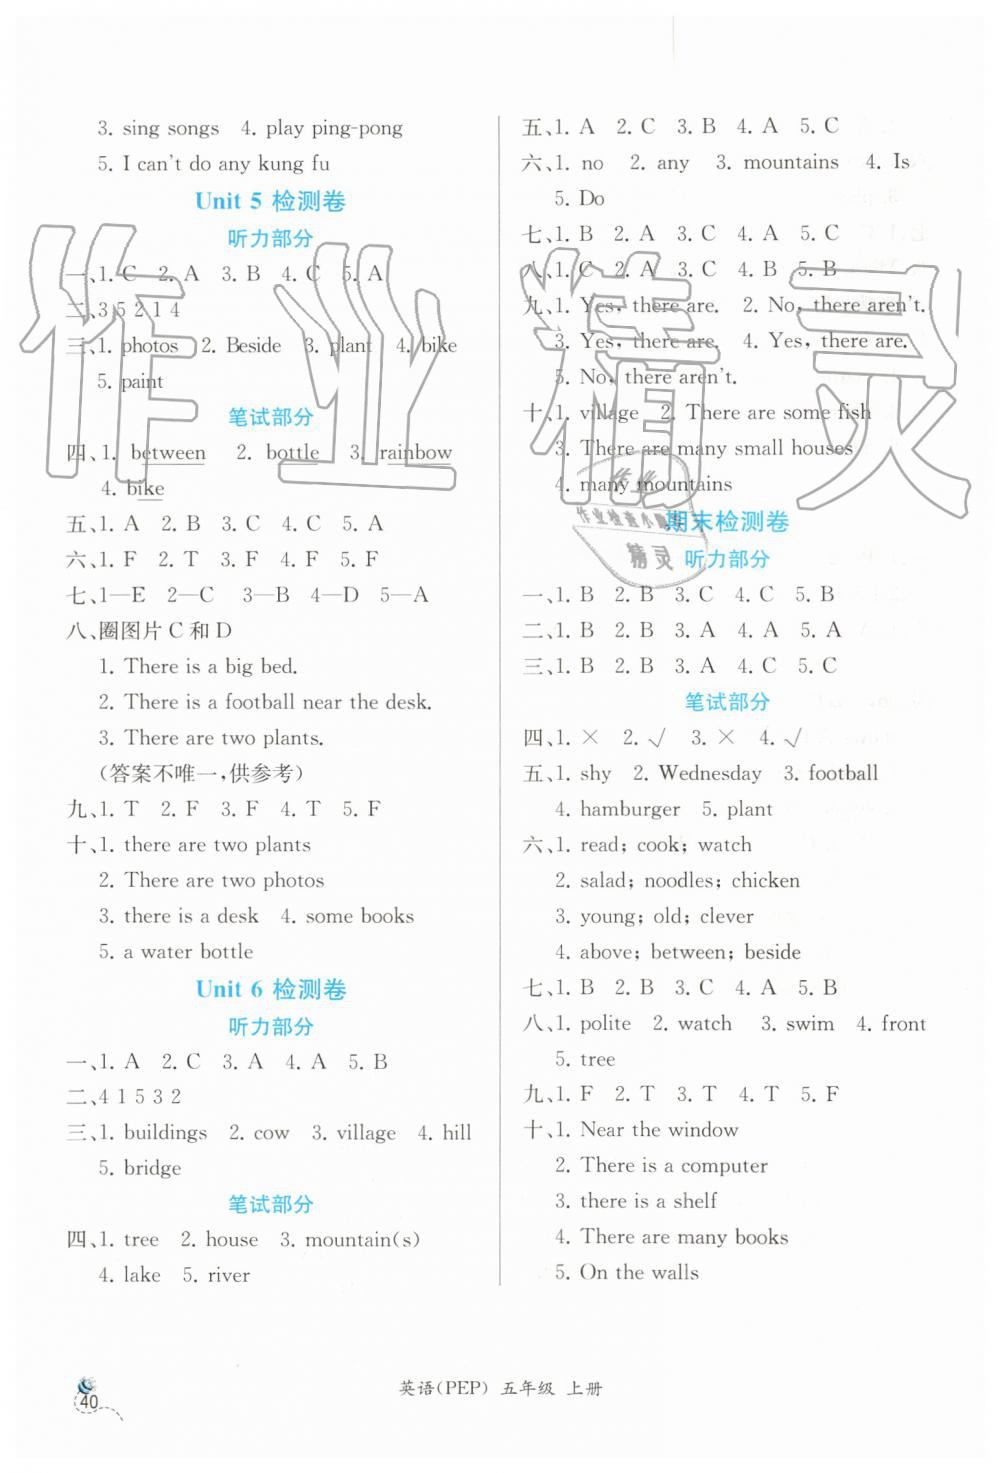 3. sing songs 4. play ping-pong
5. I can't do any kung fu
Unit 5 检测卷
听力部分
一、1. C 2. A 3. B 4. C 5. A
二、3 5 2 1 4
三、1. photos 2. Beside 3. plant 4. bike
5. paint
笔试部分
四、1. between 2. bottle 3. rainbow
4. bike
五、1. A 2. B 3. C 4. C 5. A
六、1. F 2. T 3. F 4. F 5. F
七、1—E 2—C 3—B 4—D 5—A
八、圈图片 C 和 D
1. There is a big bed.
2. There is a football near the desk.
3. There are two plants.
(答案不唯一,供参考)
九、1. T 2. F 3. F 4. T 5. F
十、1. there are two plants
2. There are two photos
3. there is a desk 4. some books
5. a water bottle
Unit 6 检测卷
听力部分
一、1. A 2. C 3. A 4. A 5. B
二、4 1 5 3 2
三、1. buildings 2. cow 3. village 4. hill
5. bridge
笔试部分
四、1. tree 2. house 3. mountain(s)
4. lake 5. river
五、1. A 2. C 3. B 4. A 5. C
六、1. no 2. any 3. mountains 4. Is
5. Do
七、1. B 2. A 3. C 4. A 5. C
八、1. C 2. A 3. C 4. B 5. B
九、1. Yes, there are. 2. No, there aren't.
3. Yes, there are. 4. Yes, there are.
5. No, there aren't.
十、1. village 2. There are some fish
3. There are many small houses
4. many mountains
期末检测卷
听力部分
一、1. B 2. B 3. C 4. C 5. B
二、1. B 2. B 3. A 4. A 5. A
三、1. B 2. B 3. A 4. C 5. C
笔试部分
四、1. × 2. √ 3. × 4. √
五、1. shy 2. Wednesday 3. football
4. hamburger 5. plant
六、1. read; cook; watch
2. salad; noodles; chicken
3. young; old; clever
4. above; between; beside
七、1. B 2. B 3. C 4. A 5. B
八、1. polite 2. watch 3. swim 4. front
5. tree
九、1. F 2. T 3. T 4. T 5. F
十、1. Near the window
2. There is a computer
3. there is a shelf
4. There are many books
5. On the walls
作业精灵
作业
作业检查小
精灵
40
英语(PEP) 五年级 上册